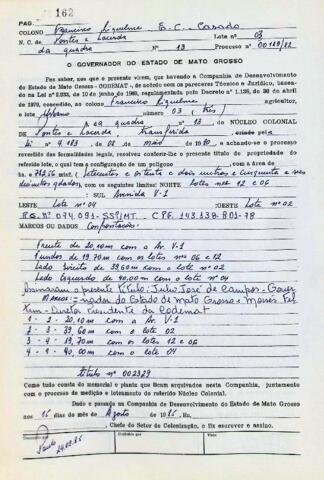 PAG. 162
COLONO Francisco Siqueline E.C. Casado
N. C. de Pontes e Lacerda Lote nº 03
da quadra Nº 13 Processo nº
O GOVERNADOR DO ESTADO DE MATO GROSSO
Faz saber, aos que o presente virem, que havendo a Companhia de Desenvolvimento
do Estado de Mato Grosso - CODEMAT -, de acordo com os pareceres Técnico e Jurídico, basea-
dos na Lei nº de 10 de junho de regulamentada pelo Decreto nº 1.138, de 30 de abril
de 1970, concedido ao colono Francisco Siqueline agricultor,
o lote urbano nº 03 (três)
da quadra nº 13 do NÚCLEO COLONIAL
DE Pontes e Lacerda, Transferida criado pela
Lei nº 4 de de maio de o presente processo
revestido das formalidades legais, resolveu conferir-lhe o presente título de propriedade do
referido lote, o qual tem a configuração de um polígono com a área de
(setecentos e oitenta e dois e cinquenta e seis
) com os seguintes limites: NORTE Lotes nºs 12 e 06
SUL Avenida V-1
LESTE Lote nº 04 OESTE Lote nº 02
R.G. Nº 074.091-SSP/MT - CPF. 143.138.801-78
MARCOS OU DADOS Confrontações
Frente de 20,10m com a Av. V-1
Fundos de 19,70m com os lotes nºs 06 e 12
Lado Direito de 39,60m com o lote nº 02
Lado Esquerdo de 40,00m com o lote nº 04
Assinaram o presente título: Júlio José de Campos - Gover
nador do Estado de Mato Grosso e Moisés Fel
Diretor Presidente da Codemat
1 - 2 - 20,10m com a Av. V-1
2 - 3 - 39,60m com o lote 02
3 - 4 - 19,70m com os lotes 12 e 06
4 - 1 - 40,00m com o lote 04
título nº 002329
Como tudo consta do memorial e planta que ficam arquivados nesta Companhia, juntamente
com o processo de medição e loteamento do referido Núcleo Colonial.
Dado e passado na Companhia de Desenvolvimento do Estado de Mato Grosso
aos dias do mês de Agosto de
Chefe do Setor de Colonização, o fiz escrever e assino.